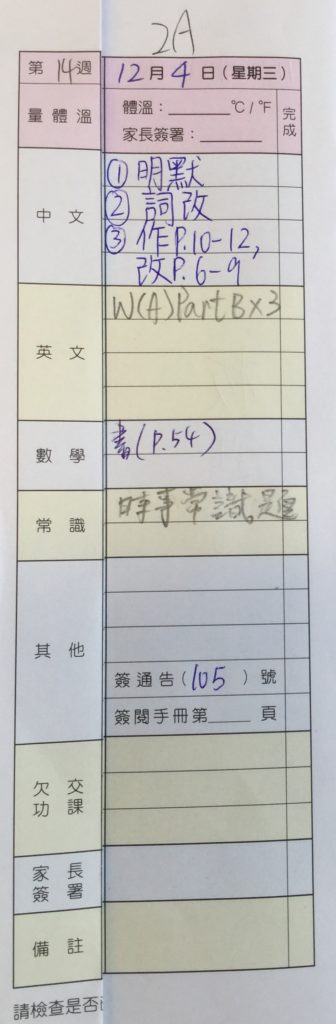 2A
第 14 週 12 月 4 日 (星期三)
量體溫 體溫: ℃/℉ 完成
家長簽署:
中文 ① 明默
② 詞改
③ 作P.10-12,
改P.6-9
英文 W(A)Part B×3
數學 書(P.54)
常識 時事常識題
其他
簽通告(105)號
簽閱手冊第 頁
欠交功課
家長簽署
備註
請檢查是否